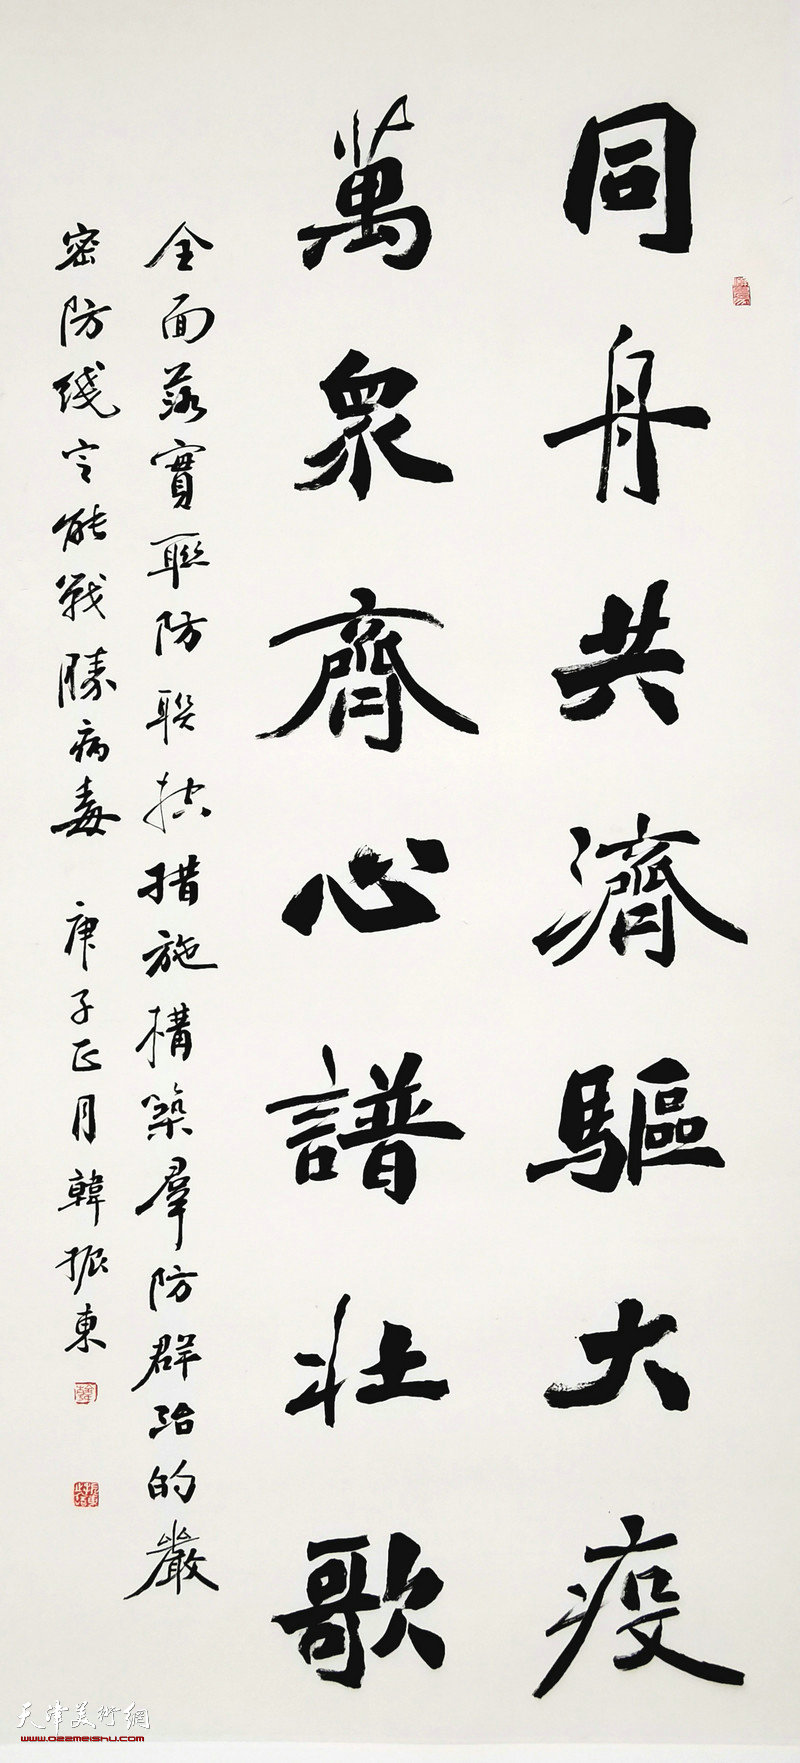 同舟共濟驅大疫
萬衆齊心譜壯歌
全面落實聯防聯控措施構築羣防群治的嚴
密防线定能戰勝病毒 庚子正月韓振東
天津美術網
www.022meishu.com